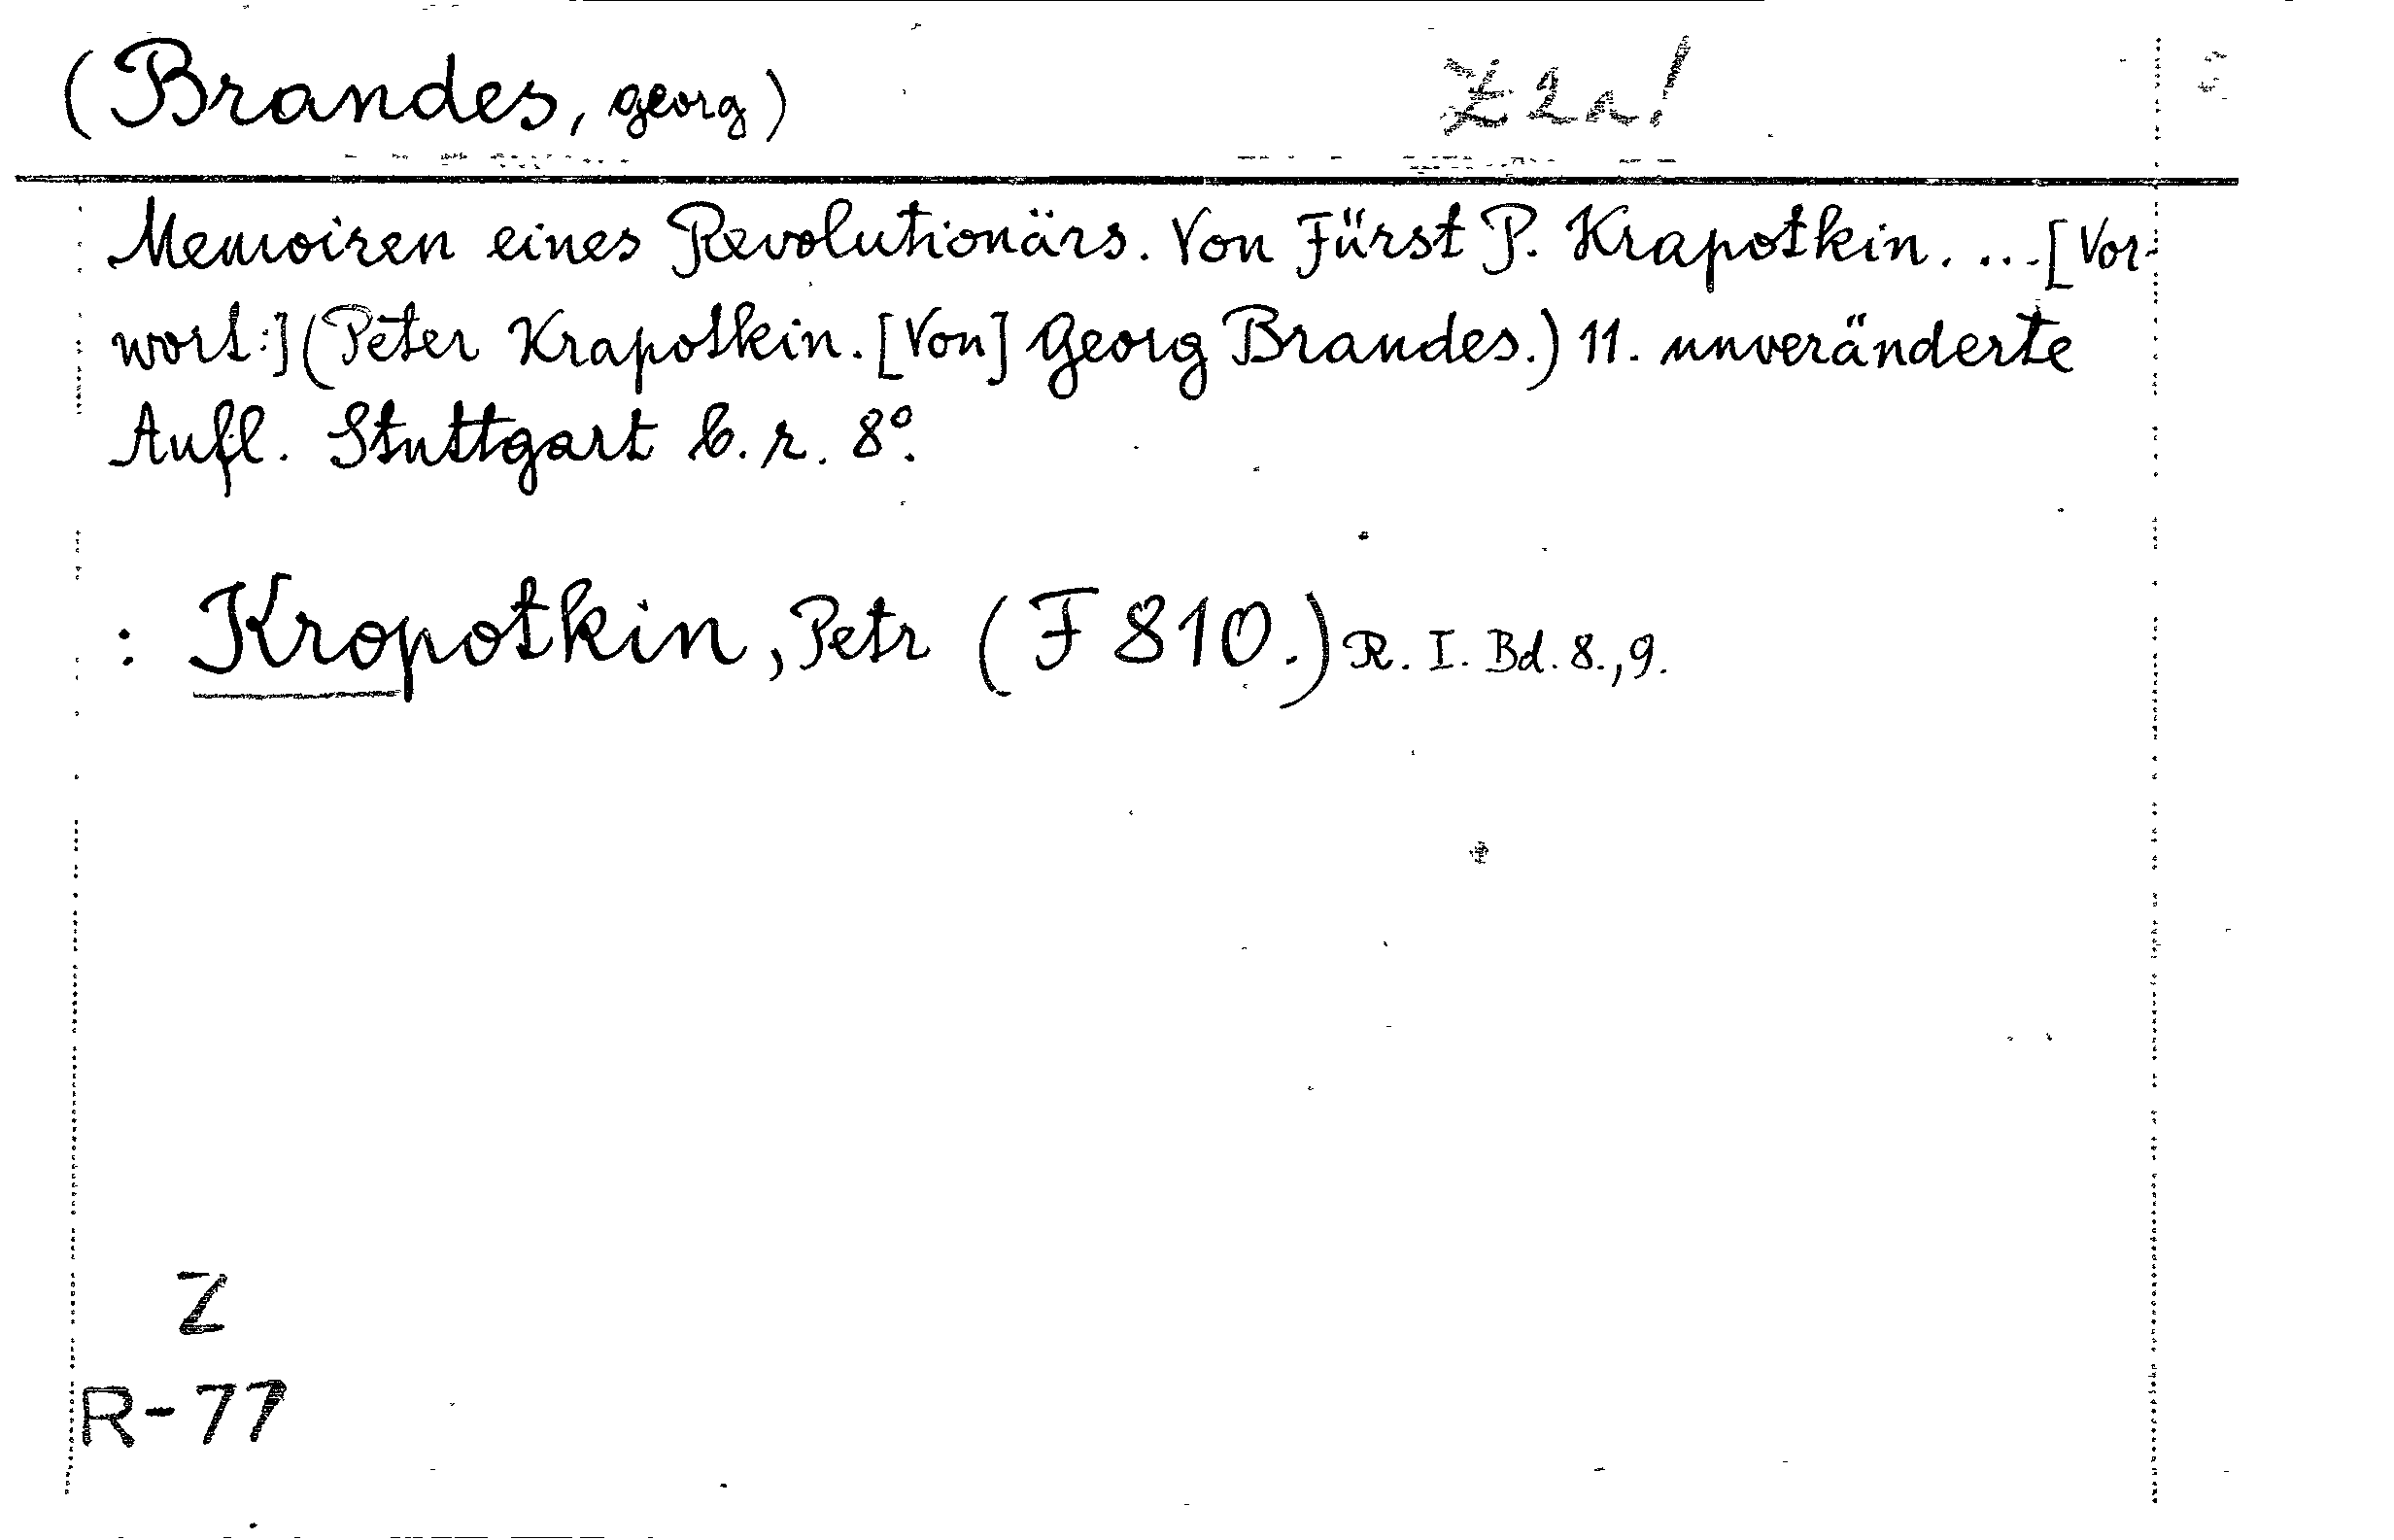 (Brandes, Georg)
Z 2a!
Memoiren eines Revolutionärs. Von Fürst P. Krapotkin. ... [Vor-
wort:] (Peter Krapotkin. [Von] Georg Brandes.) 11. unveränderte
Aufl. Stuttgart b. r. 8°.
: Kropotkin, Petr (F 810.) R. I. Bd. 8., 9.
Z
R-77